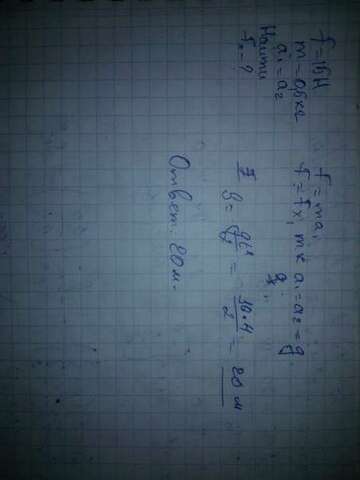 f = 15 H
m = 0,5 кг
a₁ = a₂
Найти
fₓ - ?
f = ma,
f = fₓ, a₁ = a₂ = g
S = gt²/2 = 10·4/2 = 20 м
Ответ: 20 м.